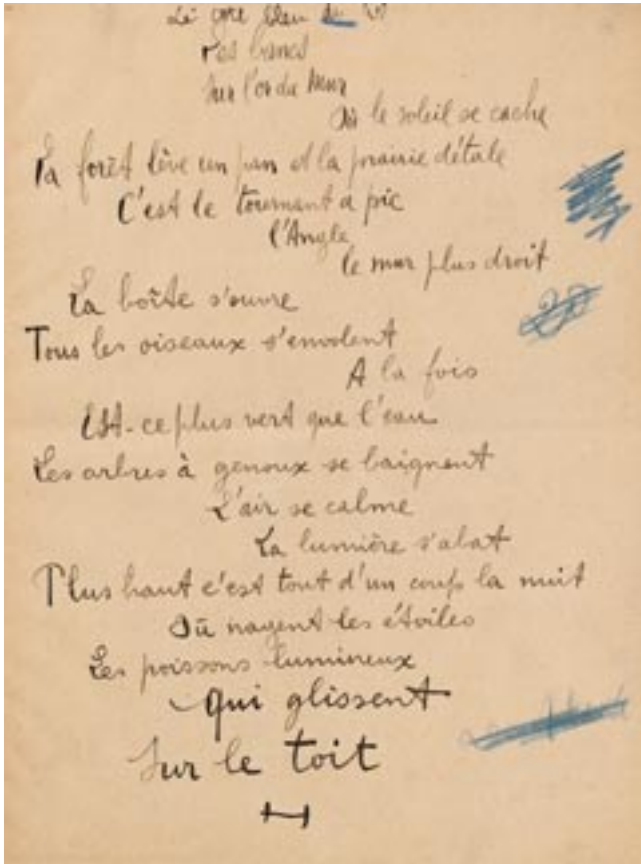 Les bancs
Sur l'or du Mur
Où le soleil se cache
La forêt lève un pan et la prairie détale
C'est le tournant a pic
l'Angle
le mur plus droit
La boîte s'ouvre
Tous les oiseaux s'envolent
A la fois
Est-ce plus vert que l'eau
Les arbres à genoux se baignent
L'air se calme
La lumière s'abat
Plus haut c'est tout d'un coup la nuit
Où nagent les étoiles
Les poissons lumineux
Qui glissent
Sur le toit